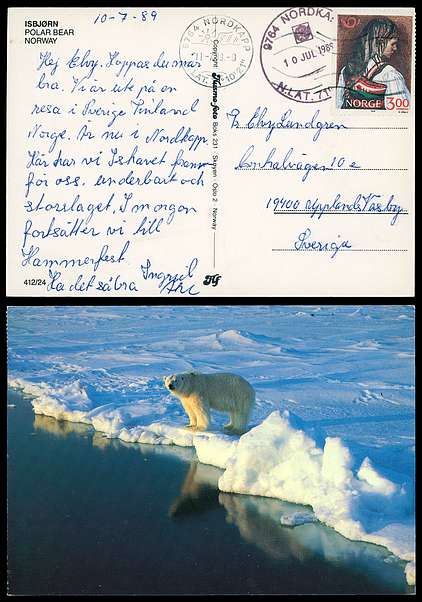 10-7-89
ISBJØRN
POLAR BEAR
NORWAY
Hej Elvy. Hoppas du mår
bra. Vi är ute på en
resa i Sverige Finland
Norge. Är nu i Nordkapp.
Här har vi Ishavet framm-
för oss. underbart och
storslaget, I morgon
fortsätter vi till
Hammerfest.
Ha det så bra Ingrid
412/24
Boks 231 - Skøyen - Oslo 2 - Norway
9764 NORDKAPP
N.LAT. 71°10'21"
9764 NORDKA
10 JUL 1989
N.LAT. 71°
NORGE 3.00
Elvy Lundgren
19400 Upplands Väsby
Sverige